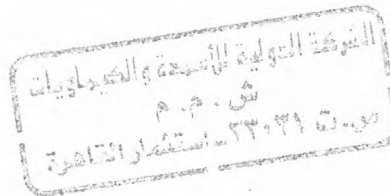 الشركة الدولية للأسمدة والكيماويات
ش . م . م
س . ت ٢٣٠٣١ - استثمار القاهرة